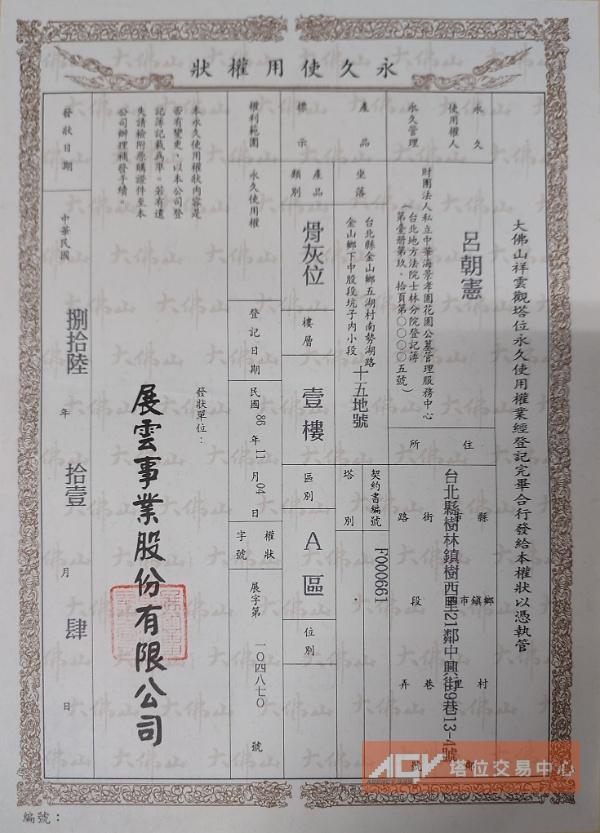 永久使用權狀
大佛山祥雲觀塔位永久使用權業經登記完畢合行發給本權狀以憑執管
永久使用權人
呂朝憲
住所
縣市 鄉鎮市 村里 鄰 街路 段 巷 弄 號
台北縣樹林鎮樹西里21鄰中興街9巷13-4號
永久管理
財團法人私立中華海景孝園花園公墓管理服務中心
(台北地方法院士林分院登記簿
第壹册第玖、拾頁第〇〇〇〇五號)
產品標示
坐落
台北縣金山鄉五湖村南勢湖路
金山鄉下中股段坑子內小段 十五地號
契約書編號
F000661
塔別
產品類別
骨灰位
樓層
壹樓
區別
A區
位別
權利範圍
永久使用權
登記日期
民國 86 年 11 月 04 日
權狀字號
展字第 一〇四八七〇 號
本永久使用權狀內容是
否有變更,以本公司登
記簿記載為準。若有遺
失請檢附原購證件至本
公司辦理補發手續。
發狀單位:
展雲事業股份有限公司
發狀日期
中華民國 捌拾陸 年 拾壹 月 肆 日
編號:
塔位交易中心
大佛山